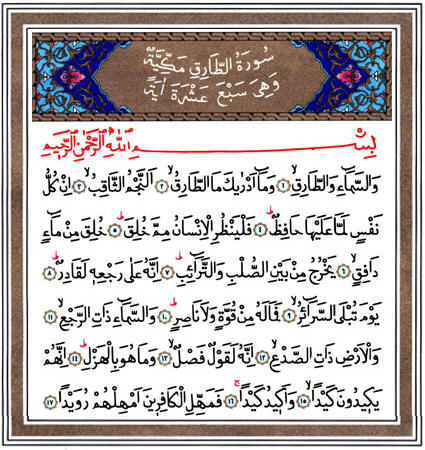 سُورَةُ الطَّارِقِ مَكِّيَّةٌ
وَهِىَ سَبْعَ عَشْرَةَ اٰيَةً
بِسْمِ اللهِ الرَّحْمٰنِ الرَّحِيمِ
وَالسَّمَاءِ وَالطَّارِقِۙ ﴿١﴾ وَمَا اَدْرٰيكَ مَا الطَّارِقُۙ ﴿٢﴾ اَلنَّجْمُ الثَّاقِبُۙ ﴿٣﴾ اِنْ كُلُّ
نَفْسٍ لَمَّا عَلَيْهَا حَافِظٌۜ ﴿٤﴾ فَلْيَنْظُرِ الْاِنْسَانُ مِمَّ خُلِقَۜ ﴿٥﴾ خُلِقَ مِنْ مَاءٍ
دَافِقٍۙ ﴿٦﴾ يَخْرُجُ مِنْ بَيْنِ الصُّلْبِ وَالتَّرَائِبِۜ ﴿٧﴾ اِنَّهُ عَلٰى رَجْعِهِ لَقَادِرٌۜ ﴿٨﴾
يَوْمَ تُبْلَى السَّرَائِرُۙ ﴿٩﴾ فَمَا لَهُ مِنْ قُوَّةٍ وَلَا نَاصِرٍۜ ﴿١٠﴾ وَالسَّمَاءِ ذَاتِ الرَّجْعِۙ ﴿١١﴾
وَالْاَرْضِ ذَاتِ الصَّدْعِۙ ﴿١٢﴾ اِنَّهُ لَقَوْلٌ فَصْلٌۙ ﴿١٣﴾ وَمَا هُوَ بِالْهَزْلِۜ ﴿١٤﴾ اِنَّهُمْ
يَكِيدُونَ كَيْدًاۙ ﴿١٥﴾ وَاَكِيدُ كَيْدًاۚ ﴿١٦﴾ فَمَهِّلِ الْكَافِرِينَ اَمْهِلْهُمْ رُوَيْدًا ﴿١٧﴾